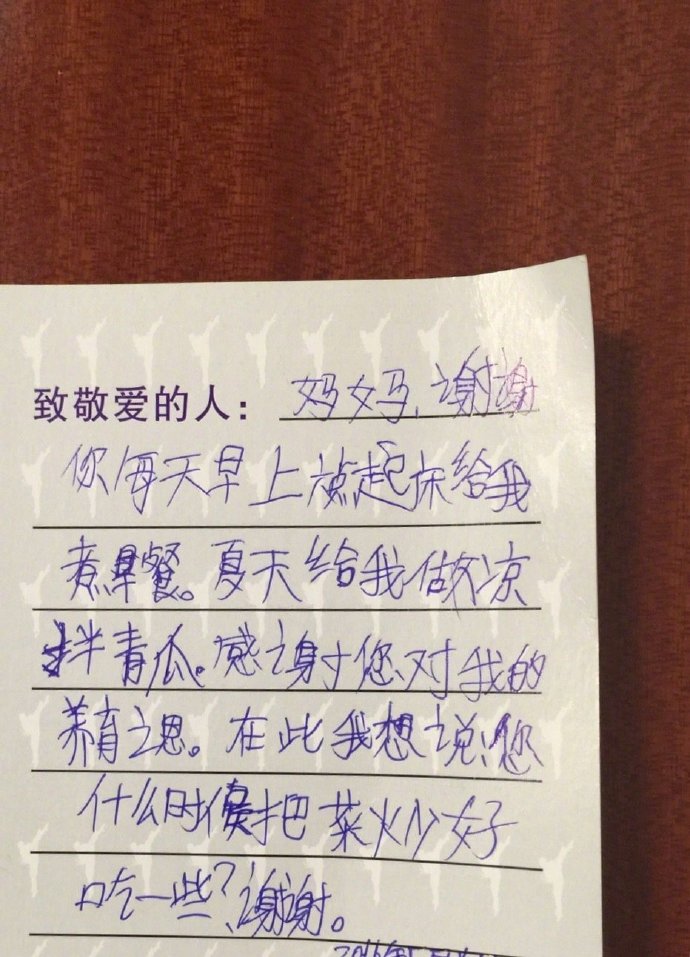 致敬爱的人：妈妈，谢谢
你每天早上六点起床给我
煮早餐。夏天给我做凉
拌青瓜。感谢您对我的
养育之恩。在此我想说：您
什么时候把菜炒好
吃一些？谢谢。
2016年